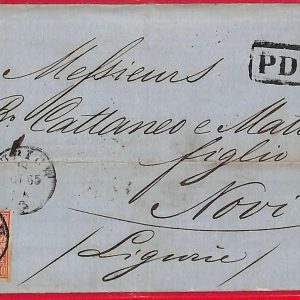 PD
Messieurs
P. Cattaneo e Mat
figlio
Novi
(Ligurie)
65